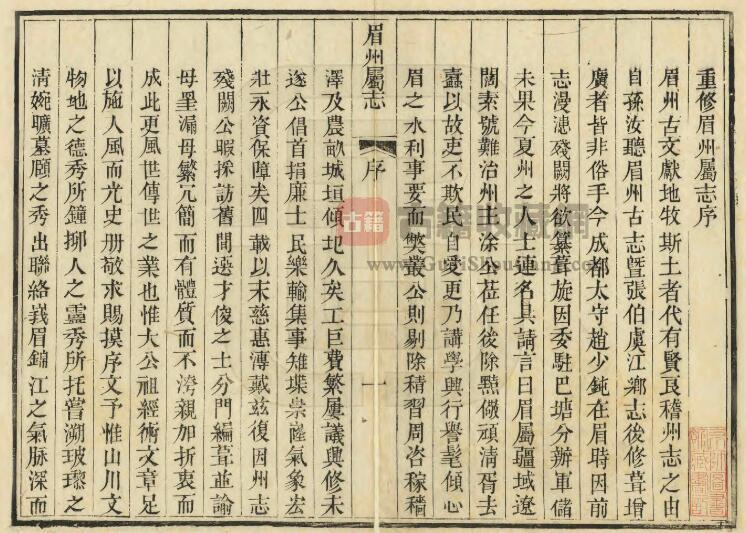 重修眉州屬志序
眉州古文獻地牧斯土者代有賢良稽州志之由
自孫汝聽眉州古志暨張伯虞江鄉志後修葺增
廣者皆非俗手今成都太守趙少鈍在眉時因前
志漫漶殘闕將欲纂葺旋因委駐巴塘分辦軍儲
未果今夏州之人士連名具請言曰眉屬疆域遼
闊素號難治州主涂公蒞任後除黠儆頑清胥去
蠹以故吏不欺民自愛更乃講學興行譽髦傾心
眉之水利事要而弊叢公則剔除積習周咨稼穡
眉州屬志
序
一
澤及農畝城垣傾圮久矣工巨費繁屢議興修未
遂公倡首捐廉士民樂輸集事雉堞崇隆氣象宏
壯永資保障矣四載以來慈惠溥戴玆復因州志
殘闕公暇採訪舊聞選才俊之士分門編葺並諭
毋罣漏毋繁冗簡而有體質而不滂親加折衷而
成此更風世傳世之業也惟大公祖經術文章足
以施人風而光史册敬求賜撰序文予惟山川文
物地之德秀所鐘抑人之靈秀所托嘗溯玻瓈之
清婉曠墓頤之秀出聯絡峩眉錦江之氣脉深而
古籍收藏網
www.GujiShoucang.com